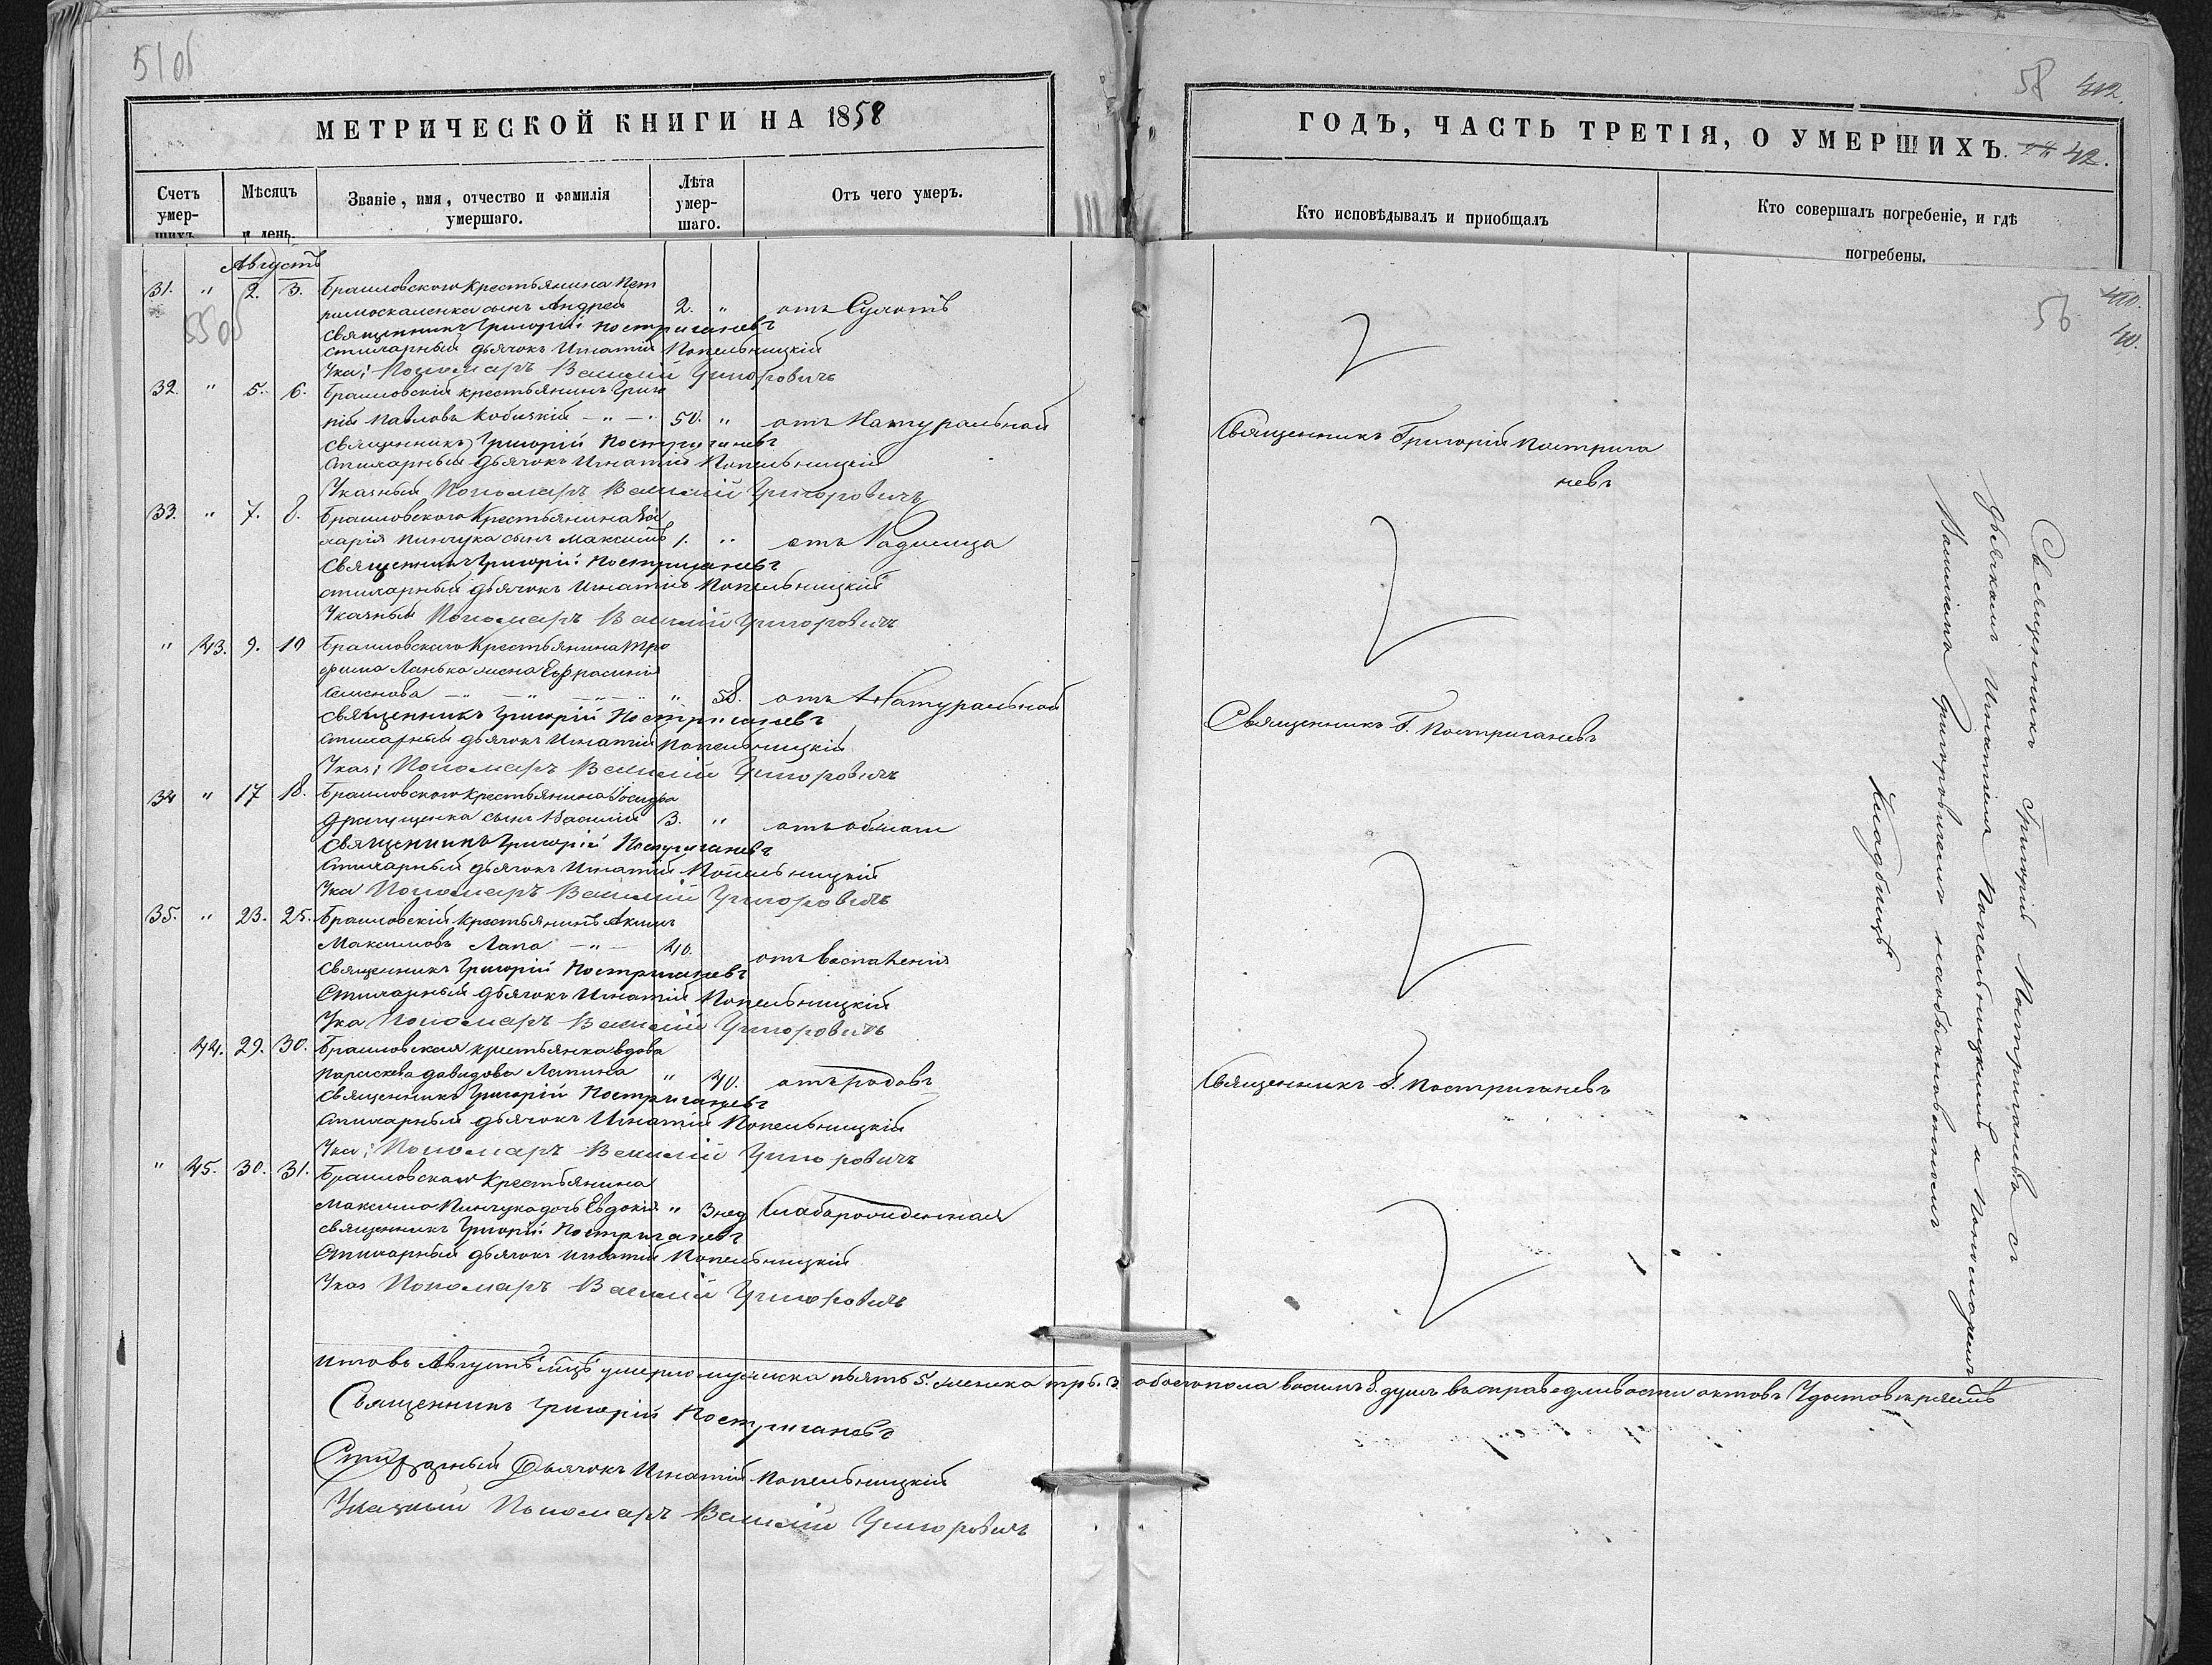 51 об
МЕТРИЧЕСКОЙ КНИГИ НА 1858
Счетъ умер-
шихъ
Мѣсяцъ
и день.
Званіе, имя, отчество и фамилія
умершаго.
Лѣта
умер-
шаго.
Отъ чего умеръ.
Августъ
31. " 2. 3. Браиловского Крестьянина Пет
сынъ Андрей 2. " отъ Сухотъ
Священникъ Григорій Постригачевъ
Стихарный дьячокъ Игнатій Попельницкій
Ука: Пономарь Василій Григоровичъ
32. " 5. 6. Браиловскій крестьянинъ Григо
рій Павловъ Кобилкій — " — 50. " отъ Натуральной
Священникъ Григорій Постригачевъ
Стихарный дьячокъ Игнатій Попельницкій
Указный Пономарь Василій Григоровичъ
33. " 7. 8. Браиловского Крестьянина За
харія Пинчука сынъ Максимъ 1. " отъ Родимца
Священникъ Григорій Постригачевъ
Стихарный дьячокъ Игнатій Попельницкій
Указный Пономарь Василій Григоровичъ
" 43. 9. 10 Браиловского Крестьянина Тро
фима Ланька жена Евфросинія
Семенова — " — " 58. отъ Натуральной
Священникъ Григорій Постригачевъ
Стихарный дьячокъ Игнатій Попельницкій
Указ: Пономарь Василій Григоровичъ
34 " 17 18. Браиловского Крестьянина Іосифа
сынъ Василій 3. "
Священникъ Григорій Постригачевъ
Стихарный дьячокъ Игнатій Попельницкій
Ука Пономарь Василій Григоровичъ
35. " 23. 25. Браиловскій Крестьянинъ Акимъ
Максимовъ Лапа — " — 40. отъ воспаленія
Священникъ Григорій Постригачевъ
Стихарный дьячокъ Игнатій Попельницкій
Ука Пономарь Василій Григоровичъ
44. 29. 30. Браиловская крестьянка вдова
Параскева Давидова Лапина " 40. отъ родовъ
Священникъ Григорій Постригачевъ
Стихарный дьячокъ Игнатій Попельницкій
Ука: Пономарь Василій Григоровичъ
" 45. 30. 31. Браиловского Крестьянина
Максима Пинчука дочь Евдокія " 3 нед Слаборожденная
Священникъ Григорій Постригачевъ
Стихарный дьячокъ Игнатій Попельницкій
Указ Пономарь Василій Григоровичъ
Итого въ Августѣ м̃цѣ умерло мужска пять 5. женска три. 3. обоего пола восимъ 8. душъ въ справедливости актовъ Удостовѣряемъ
Священникъ Григорій Постригачевъ
Стихарный Дьячокъ Игнатій Попельницкій
Указный Пономарь Василій Григоровичъ
55 об
58 412.
ГОДЪ, ЧАСТЬ ТРЕТІЯ, О УМЕРШИХЪ. 42.
Кто исповѣдывалъ и приобщалъ
Кто совершалъ погребеніе, и гдѣ
погребены.
56 410.
40.
Священникъ Григорій Пострига
чевъ
Священникъ Г. Постригачевъ
Священникъ Г. Постригачевъ
Священникъ Григорій Постригачевъ съ
Дьячкомъ Игнатіемъ Попельницкимъ и Пономаремъ
Василіемъ Григоровичемъ на обыкновенномъ
Кладбищѣ